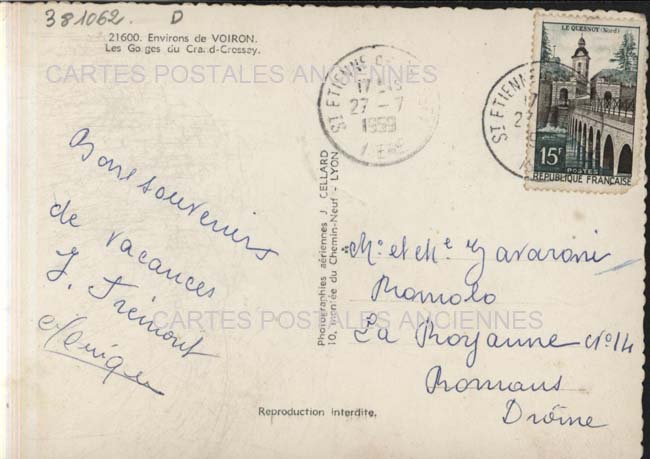 381062. D
21600. Environs de VOIRON.
Les Gorges du Crand-Crossey.
CARTES POSTALES ANCIENNES
LE QUESNOY (Nord)
15F
POSTES
REPUBLIQUE FRANÇAISE
ST ETIENNE
17
27 - 7
1959
ISERE
ST ETIENN
Bons souvenirs
de vacances
J. Trémont
Photographies aériennes J. CELLARD
10, montée du Chemin-Neuf - LYON
Mr et Me Zavaroni
Romolo
La Royanne No 14
Romans
Drôme
CARTES POSTALES ANCIENNES
Reproduction interdite.